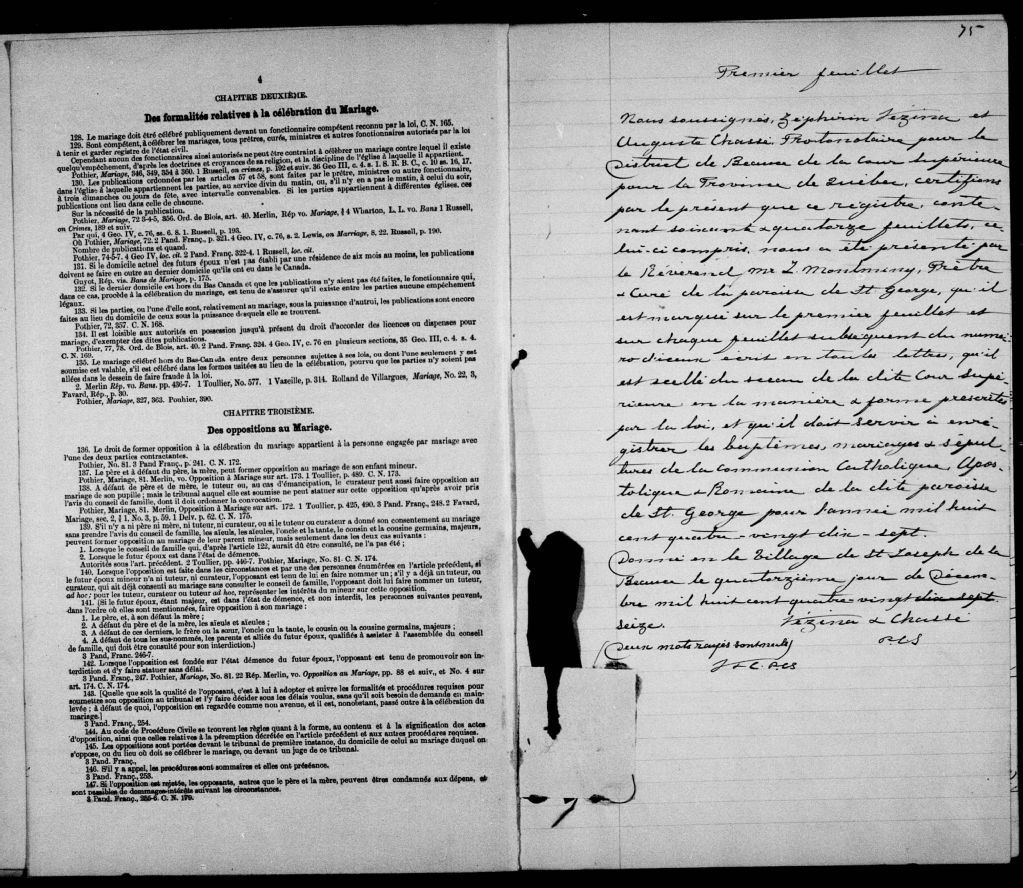 4
CHAPITRE DEUXIÈME.
Des formalités relatives à la célébration du Mariage.
128. Le mariage doit être célébré publiquement devant un fonctionnaire compétent reconnu par la loi, C. N. 165.
129. Sont compétent, à célébrer les mariages, tous prêtres, curés, ministres et autres fonctionnaires autorisés par la loi
à tenir et garder registre de l'état civil.
Cependant aucun des fonctionnaires ainsi autorisés ne peut être contraint à célébrer un mariage contre lequel il existe
quelqu'empêchement, d'après les doctrines et croyances de sa religion, et la discipline de l'église à laquelle il appartient.
Pothier, Mariage, 346, 349, 354 à 360. 1 Russell, on crimes, p. 192 et suiv. 36 Geo III, c. 4 s. 1. S. R. B. C., c. 10 ss. 16, 17,
130. Les publications ordonnées par les articles 57 et 58, sont faites par le prêtre, ministre ou autre fonctionnaire,
dans l'église à laquelle appartiennent les parties, au service divin du matin, ou, s'il n'y en a pas le matin, à celui du soir,
à trois dimanches ou jours de fête, avec intervalle convenables. Si les parties appartiennent à différentes églises, ces
publications ont lieu dans celle de chacune.
Sur la nécessité de la publication.
Pothier, Mariage, 72 3-4-5, 356. Ord. de Blois, art. 40. Merlin, Rép vo. Mariage, § 4 Wharton, L. L. vo. Bans 1 Russell,
on Crimes, 189 et suiv.
Par qui, 4 Geo. IV, c. 76, ss. 6. 8. 1 Russell, p. 193.
Où Pothier, Mariage, 72. 2 Pand. Franç., p. 321. 4 Geo. IV, c. 76, s. 2. Lewis, on Marriage, 8, 22. Russell, p. 190.
Nombre de publications et quand.
Pothier, 74-5-7. 4 Geo IV, loc. cit. 2 Pand. Franç. 322-4. 1 Russell, loc. cit.
131. Si le domicile actuel des futurs époux n'est pas établi par une résidence de six mois au moins, les publications
doivent se faire en outre au dernier domicile qu'ils ont eu dans le Canada.
Guyot, Rép. vis. Bans de Mariage, p. 175.
132. Si le dernier domicile est hors du Bas Canada et que les publications n'y aient pas été faites, le fonctionnaire qui,
dans ce cas, procède à la célébration du mariage, est tenu de s'assurer qu'il existe entre les parties aucune empêchement
légaux.
133. Si les parties, ou l'une d'elle sont, relativement au mariage, sous la puissance d'autrui, les publications sont encore
faites au lieu du domicile de ceux sous la puissance desquels elle se trouvent.
Pothier, 72, 357. C. N. 168.
134. Il est loisible aux autorités en possession jusqu'à présent du droit d'accorder des licences ou dispenses pour
mariage, d'exempter des dites publications.
Pothier, 77, 78. Ord. de Blois, art. 40. 2 Pand. Franç. 324. 4 Geo. IV, c. 76 en plusieurs sections, 35 Geo. III, c. 4. s. 4.
C. N. 169.
135. Le mariage célébré hors du Bas-Canada entre deux personnes sujettes à ses lois, ou dont l'une seulement y est
soumise est valable, s'il est célébré dans les formes usitées au lieu de la célébration, pourvu que les parties n'y soient pas
allées dans le dessein de faire fraude à la loi.
2. Merlin Rép. vo. Bans. pp. 436-7. 1 Toullier, No. 577. 1 Vazeille, p. 314. Rolland de Villargues, Mariage, No. 22, 3,
Favard, Rép., p. 30.
Pothier, Mariage, 327, 363. Pouhier, 390.
CHAPITRE TROISIÈME.
Des oppositions au Mariage.
136. Le droit de former opposition à la célébration du mariage appartient à la personne engagée par mariage avec
l'une des deux parties contractantes.
Pothier, No. 81. 3 Pand Franç., p. 241. C. N. 172.
137. Le père et à défaut du père, la mère, peut former opposition au mariage de son enfant mineur.
Pothier, Mariage, 81. Merlin, vo. Opposition à Mariage sur art. 173. 1 Toullier, p. 489. C. N. 173.
138. A défaut de père et de mère, le tuteur ou, au cas d'émancipation, le curateur peut aussi faire opposition au
mariage de son pupille; mais le tribunal auquel elle est soumise ne peut statuer sur cette opposition qu'après avoir pris
l'avis du conseil de famille, dont il doit ordonner la convocation.
Pothier, Mariage, 81. Merlin, Opposition à Mariage sur art. 172. 1 Toullier, p. 425, 490. 3 Pand. Franç., 248. 2 Favard,
Mariage, sec. 2, § 1, No. 3, p. 59. 1 Delv. p. 62. C. N. 175.
139. S'il n'y a ni père ni mère, ni tuteur, ni curateur, ou si le tuteur ou curateur a donné son consentement au mariage
sans prendre l'avis du conseil de famille, les aïeuls, les aïeules, l'oncle et la tante, le cousin et la cousine germains, majeurs,
peuvent former opposition au mariage de leur parent mineur, mais seulement dans les deux cas suivants :
1. Lorsque le conseil de famille qui, d'après l'article 122, aurait dû être consulté, ne l'a pas été ;
2. Lorsque le futur époux est dans l'état de démence.
Autorités sous l'art. précédent. 2 Toullier, pp. 446-7. Pothier, Mariage, No. 81. C. N. 174.
140. Lorsque l'opposition est faite dans les circonstances et par une des personnes énumérées en l'article précédent, si
le futur époux mineur n'a ni tuteur, ni curateur, l'opposant est tenu de lui en faire nommer un ; s'il y a déjà un tuteur, ou
curateur, qui ait déjà consenti au mariage sans consulter le conseil de famille, l'opposant doit lui faire nommer un tuteur,
ad hoc: pour les tuteur, curateur ou tuteur ad hoc, représenter les intérêts du mineur sur cette opposition.
141. [Si le futur époux, étant majeur, est dans l'état de démence, et non interdit, les personnes suivantes peuvent,
dans l'ordre où elles sont mentionnées, faire opposition à son mariage :
1. Le père, et, à son défaut la mère ;
2. A défaut du père et de la mère, les aïeuls et aïeules ;
3. A défaut de ces derniers, le frère ou la sœur, l'oncle ou la tante, le cousin ou la cousine germains, majeurs ;
4. A défaut de tous les sus-nommés, les parents et alliés du futur époux, qualifiés à assister à l'assemblée du conseil
de famille, qui doit être consulté pour son interdiction.)
3 Pand. Franc. 246-7.
142. Lorsque l'opposition est fondée sur l'état démence du futur époux, l'opposant est tenu de promouvoir son in-
terdiction et d'y faire statuer sans délai.
3 Pand. Franç., 247. Pothier, Mariage, No. 81. 22 Rép. Merlin, vo. Opposition au Mariage, pp. 88 et suiv., et No. 4 sur
art. 174. C. N. 174.
143. [Quelle que soit la qualité de l'opposant, c'est à lui à adopter et suivre les formalités et procédures requises pour
soumettre son opposition au tribunal et l'y faire décider sous les délais voulus, sans qu'il soit besoin de demande en main-
levée ; à défaut de quoi, l'opposition est regardée comme non avenue, et il est, nonobstant, passé outre à la célébration du
mariage.]
3 Pand. Franç., 254.
144. Au code de Procédure Civile se trouvent les règles quant à la forme, au contenu et à la signification des actes
d'opposition, ainsi que celles relatives à la péremption décrétée en l'article précédent et aux autres procédures requises.
145. Les oppositions sont portées devant le tribunal de première instance, du domicile de celui au mariage duquel on
s'oppose, ou du lieu où doit se célébrer le mariage, ou devant un juge de ce tribunal.
3 Pand. Franç.,
146. S'il y a appel, les procédures sont sommaires et elles ont préséance.
3 Pand. Franç., 253.
147. Si l'opposition est rejetée, les opposants, autres que le père et la mère, peuvent êtres condamnés aux dépens, et
sont passibles de dommages-intérêts suivant les circonstances.
3 Pand. Franç., 255-6. C. N. 179.
75
Premier feuillet
Nous soussignés, Zéphirin Vézina et
Auguste Chassé, Protonotaire pour le
District de Beauce de la Cour Supérieure
pour la Province de Québec, certifions
par le présent que ce registre, conte-
nant soixante & quatorze feuillets, ce-
lui-ci compris, nous a été présenté par
le Révérend Mr T. Montminy, Prêtre
& Curé de la paroisse de St George, qu'il
est marqué sur le premier feuillet et
sur chaque feuillet subséquent du numé-
ro d'iceux écrit en toutes lettres, qu'il
est scellé du sceau de la dite Cour Supé-
rieure en la manière & forme prescrites
par la loi, et qu'il doit servir à enré-
gistrer les baptêmes, mariages & sépul-
tures de la communion Catholique, Apos-
tolique & Romaine de la dite paroisse
de St. George pour l'année mil huit
cent quatre-vingt dix-sept.
Donné en le Village de St Joseph de la
Beauce le quatorzième jour de Décem-
bre mil huit cent quatre-vingt dix-sept.
seize. Vézina & Chassé
(deux mots rayés sont nuls) P.C.S
V & C. P.C.S